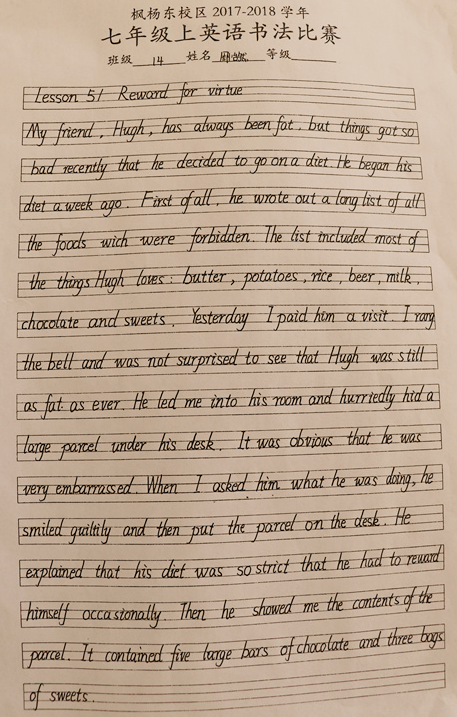 枫杨东校区 2017-2018 学年
七年级上英语书法比赛
班级 14 姓名 等级
Lesson 51 Reward for virtue
My friend, Hugh, has always been fat, but things got so
bad recently that he decided to go on a diet. He began his
diet a week ago. First of all, he wrote out a long list of all
the foods wich were forbidden. The list included most of
the things Hugh loves: butter, potatoes, rice, beer, milk,
chocolate and sweets. Yesterday I paid him a visit. I rang
the bell and was not surprised to see that Hugh was still
as fat as ever. He led me into his room and hurriedly hid a
large parcel under his desk. It was obvious that he was
very embarrassed. When I asked him what he was doing, he
smiled guiltily and then put the parcel on the desk. He
explained that his diet was so strict that he had to reward
himself occasionally. Then he showed me the contents of the
parcel. It contained five large bars of chocolate and three bags
of sweets.